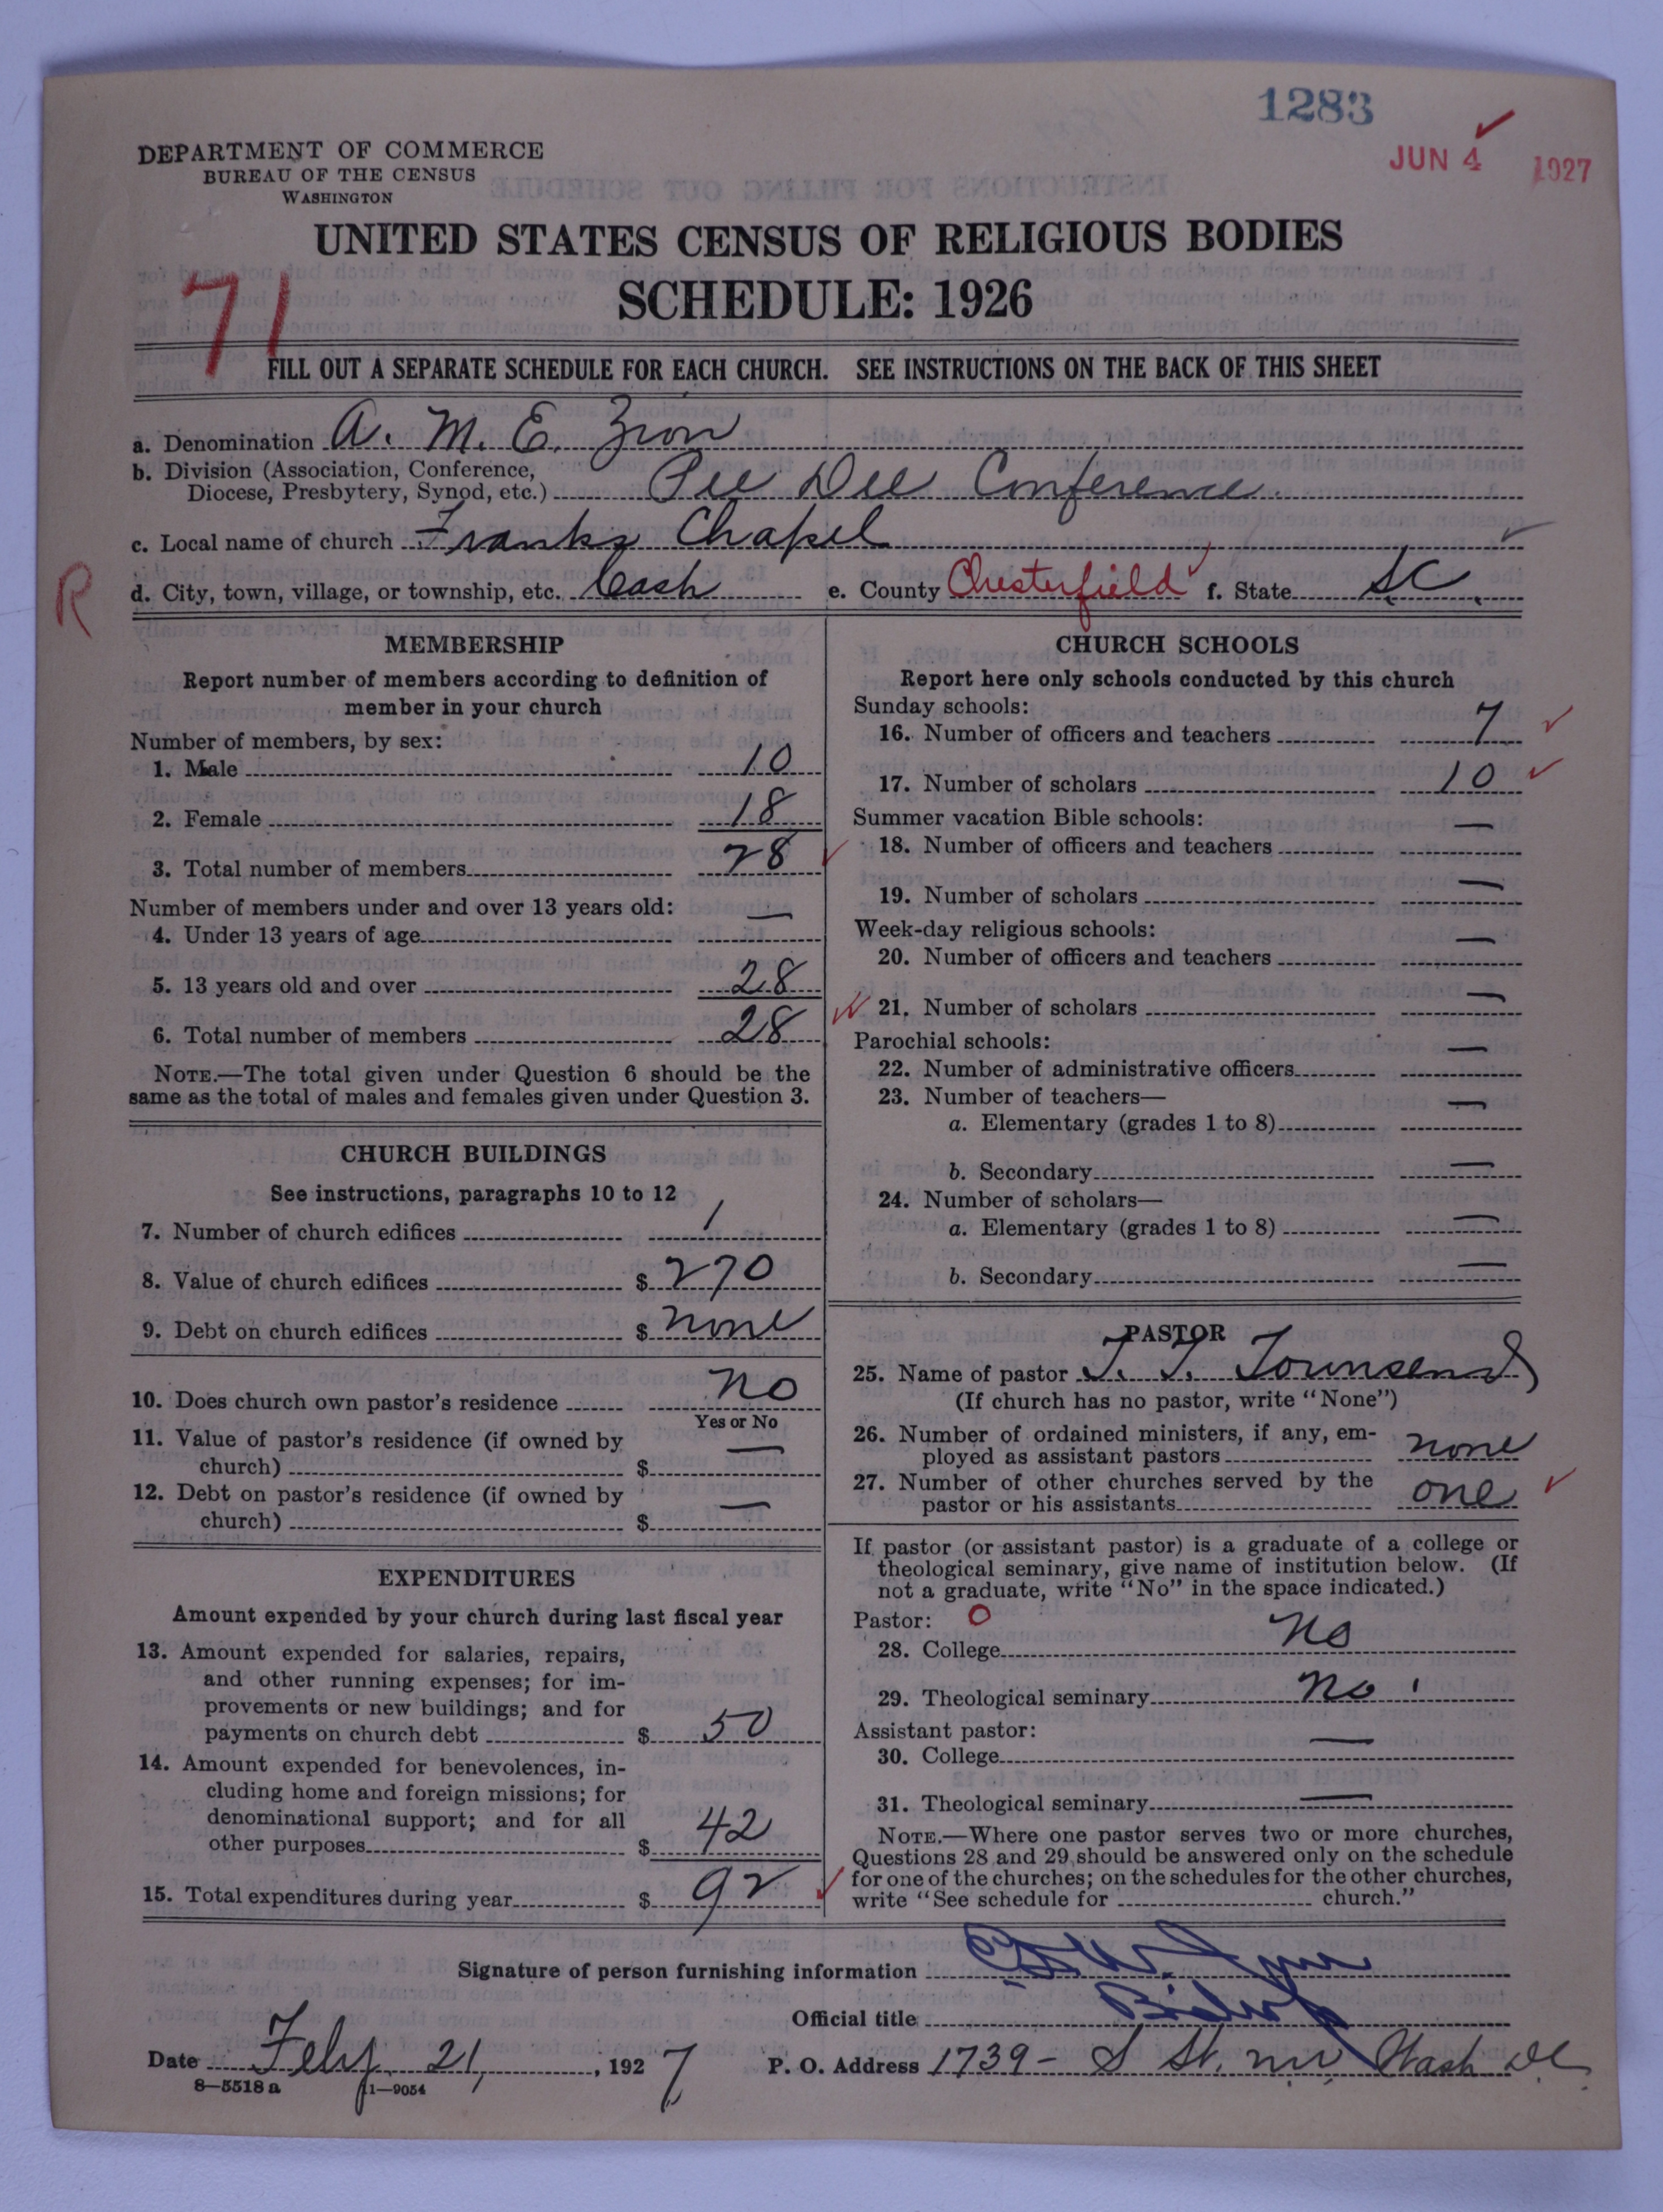 1283
JUN 4 1927
DEPARTMENT OF COMMERCE
BUREAU OF THE CENSUS
WASHINGTON
UNITED STATES CENSUS OF RELIGIOUS BODIES
SCHEDULE: 1926
71
FILL OUT A SEPARATE SCHEDULE FOR EACH CHURCH. SEE INSTRUCTIONS ON THE BACK OF THIS SHEET
a. Denomination A. M. E. Zion
b. Division (Association, Conference,
Diocese, Presbytery, Synod, etc.) Pee Dee Conference
c. Local name of church Franks Chapel
R
d. City, town, village, or township, etc. Cash e. County Chesterfield f. State S.C.
MEMBERSHIP
Report number of members according to definition of
member in your church
Number of members, by sex:
1. Male 10
2. Female 18
3. Total number of members 28
Number of members under and over 13 years old:
4. Under 13 years of age —
5. 13 years old and over 28
6. Total number of members 28
NOTE.—The total given under Question 6 should be the
same as the total of males and females given under Question 3.
CHURCH BUILDINGS
See instructions, paragraphs 10 to 12
7. Number of church edifices 1
8. Value of church edifices $ 270
9. Debt on church edifices $ none
10. Does church own pastor's residence no
Yes or No
11. Value of pastor's residence (if owned by
church) $ —
12. Debt on pastor's residence (if owned by
church) $ —
EXPENDITURES
Amount expended by your church during last fiscal year
13. Amount expended for salaries, repairs,
and other running expenses; for im-
provements or new buildings; and for
payments on church debt $ 50
14. Amount expended for benevolences, in-
cluding home and foreign missions; for
denominational support; and for all
other purposes $ 42
15. Total expenditures during year $ 92
CHURCH SCHOOLS
Report here only schools conducted by this church
Sunday schools:
16. Number of officers and teachers 7
17. Number of scholars 10
Summer vacation Bible schools:
18. Number of officers and teachers —
19. Number of scholars —
Week-day religious schools:
20. Number of officers and teachers —
21. Number of scholars —
Parochial schools:
22. Number of administrative officers —
23. Number of teachers—
a. Elementary (grades 1 to 8) —
b. Secondary —
24. Number of scholars—
a. Elementary (grades 1 to 8) —
b. Secondary —
PASTOR
25. Name of pastor J. J. Townsend
(If church has no pastor, write "None")
26. Number of ordained ministers, if any, em-
ployed as assistant pastors none
27. Number of other churches served by the
pastor or his assistants one
If pastor (or assistant pastor) is a graduate of a college or
theological seminary, give name of institution below. (If
not a graduate, write "No" in the space indicated.)
Pastor: O
28. College No
29. Theological seminary No
Assistant pastor:
30. College —
31. Theological seminary —
NOTE.—Where one pastor serves two or more churches,
Questions 28 and 29 should be answered only on the schedule
for one of the churches; on the schedules for the other churches,
write "See schedule for church."
Signature of person furnishing information
Official title Bishop
Date Feby 21, 1927 P. O. Address 1739 - S St. NW Wash D.C.
8—5518 a 11—9054